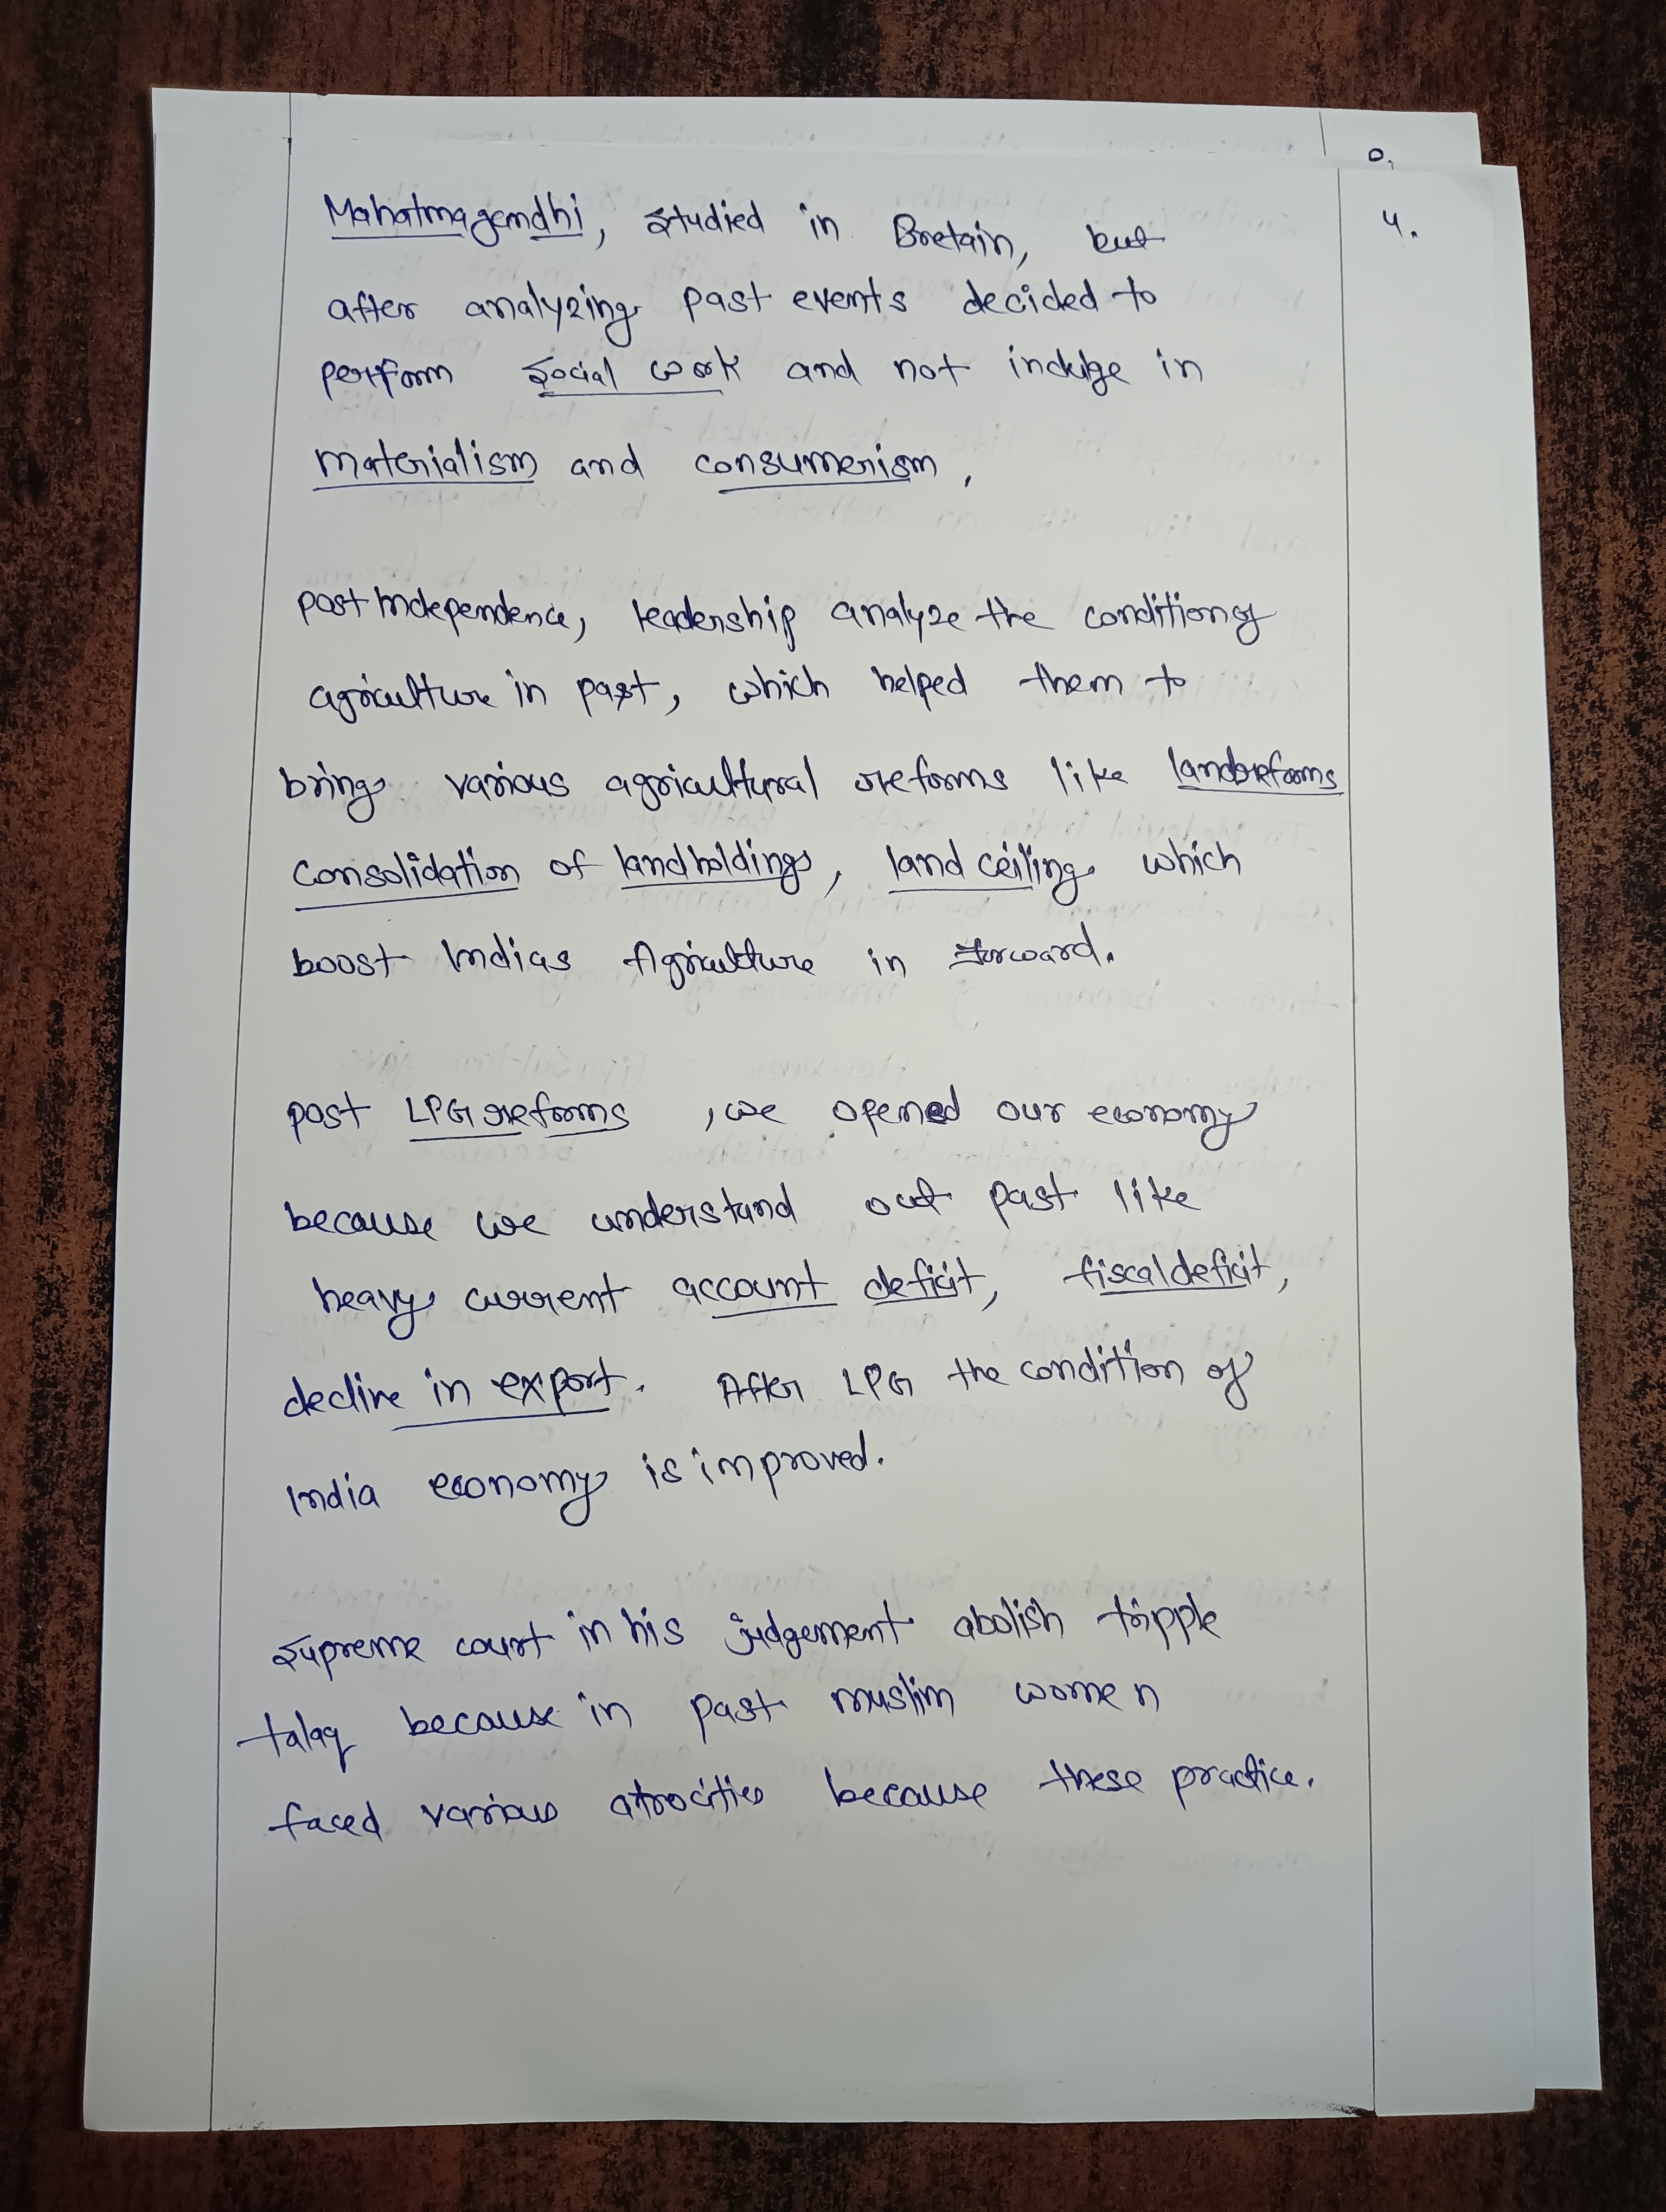 0,
4.
Mahatmagandhi, studied in Bretain, but
after analyzing past events decided to
perform social work and not indulge in
materialism and consumerism,
post Independence, leadership analyze the condition of
agriculture in past, which helped them to
bring various agricultural reforms like landreforms
consolidation of landholdings, land ceiling which
boost Indias Agriculture in forward.
post LPG reforms , we opened our economy
because we understand out past like
heavy current account deficit, fiscal deficit,
decline in export. After LPG the condition of
India economy is improved.
supreme court in his judgement abolish tripple
talaq because in past muslim women
faced various atrocities because these practice.